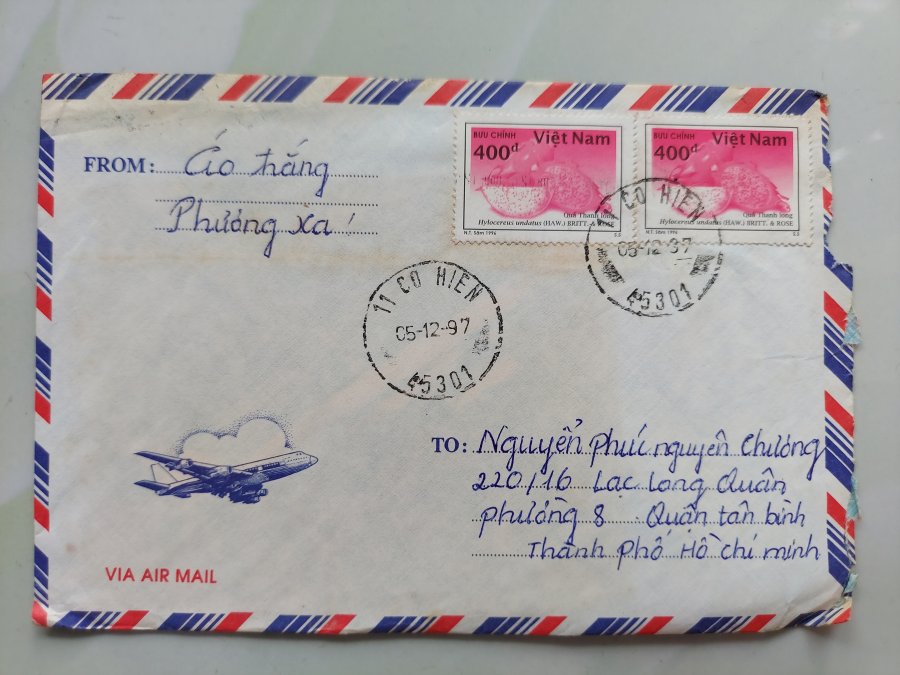 FROM: Áo trắng
Phương xa!
BƯU CHÍNH Việt Nam
400đ
Quả Thanh long
Hylocereus undatus (HAW.) BRITT. & ROSE
N.T. Sâm 1996 S.S
BƯU CHÍNH Việt Nam
400đ
Quả Thanh long
Hylocereus undatus (HAW.) BRITT. & ROSE
N.T. Sâm 1996 S.S
11 CO HIEN
05-12-97
45301
11 CO HIEN
05-12-97
45301
TO: Nguyễn phúc nguyên Chương
220/16 Lạc Long Quân
phường 8 Quận tân bình
Thành phố Hồ chí minh
VIA AIR MAIL